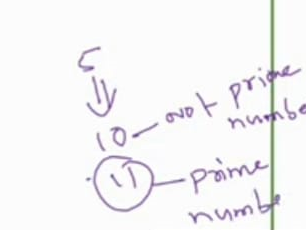 5
10 - not prime
number
11 - prime
numbe